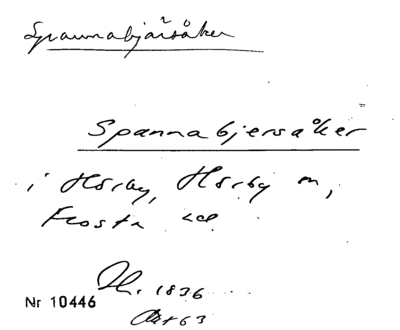 Spannabjärsåker
Spannabjersåker
i Hörby, Hörby m,
Frosta
1836
Nr 10446
Akt 63